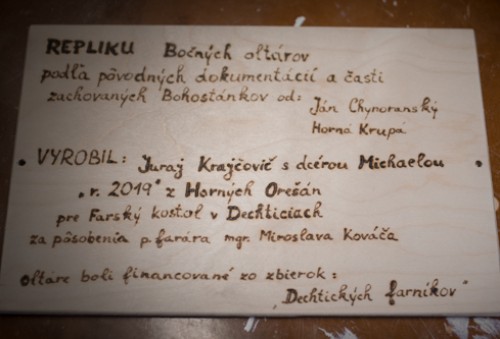 REPLIKU Bočných oltárov
podľa pôvodných dokumentácií a časti
zachovaných Bohostánkov od:
Ján Chynoranský
Horná Krupá
VYROBIL: Juraj Krajčovič s dcérou Michaelou
„r. 2019" z Horných Orešán
pre Farský kostol v Dechticiach
za pôsobenia p. farára mgr. Miroslava Kováča
oltáre boli financované zo zbierok:
„Dechtických farníkov"